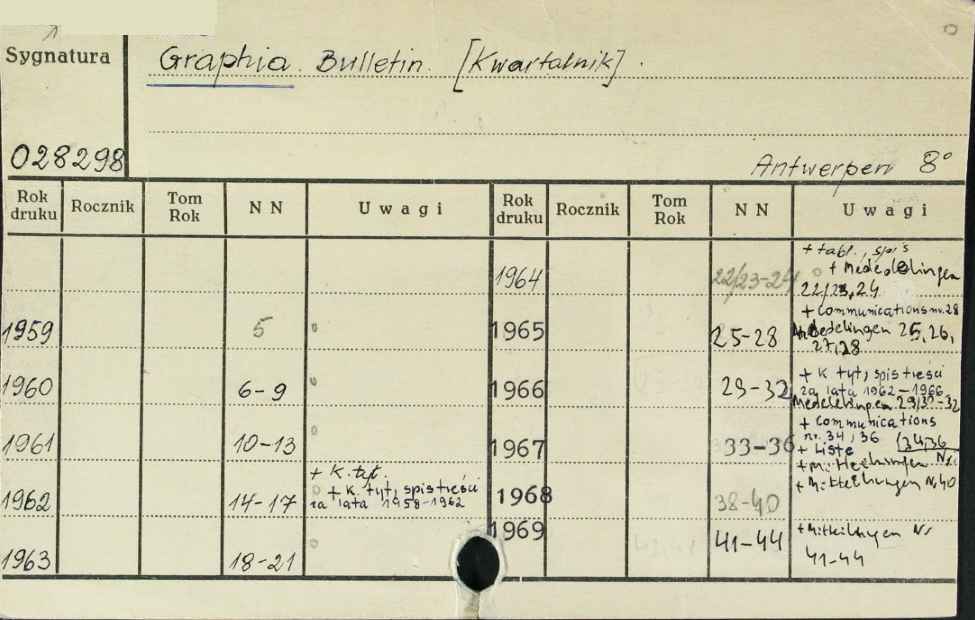 Sygnatura
Graphia. Bulletin. [Kwartalnik].
028298
Antwerpen 8°
Rok druku Rocznik Tom Rok NN Uwagi Rok druku Rocznik Tom Rok NN Uwagi
1964 22/23-24 + tabl., spis
+ Mededelingen
22/23, 24
1959 5 1965 25-28 + communications nr. 28
Mededelingen 25, 26,
27, 28
1960 6-9 1966 29-32 + k tyt, spis treści
za lata 1962-1966
Mededelingen 29/30-32
1961 10-13 1967 33-36 + communications
nr. 34, 36 (34, 36
+ Liste
+ Mitteilungen Nr.
1962 14-17 + k. tyt.
+ k. tyt, spis treści
za lata 1958-1962
1968 38-40 + Mitteilungen Nr 40
1963 18-21 1969 41-44 + Mitteilungen Nr
41-44